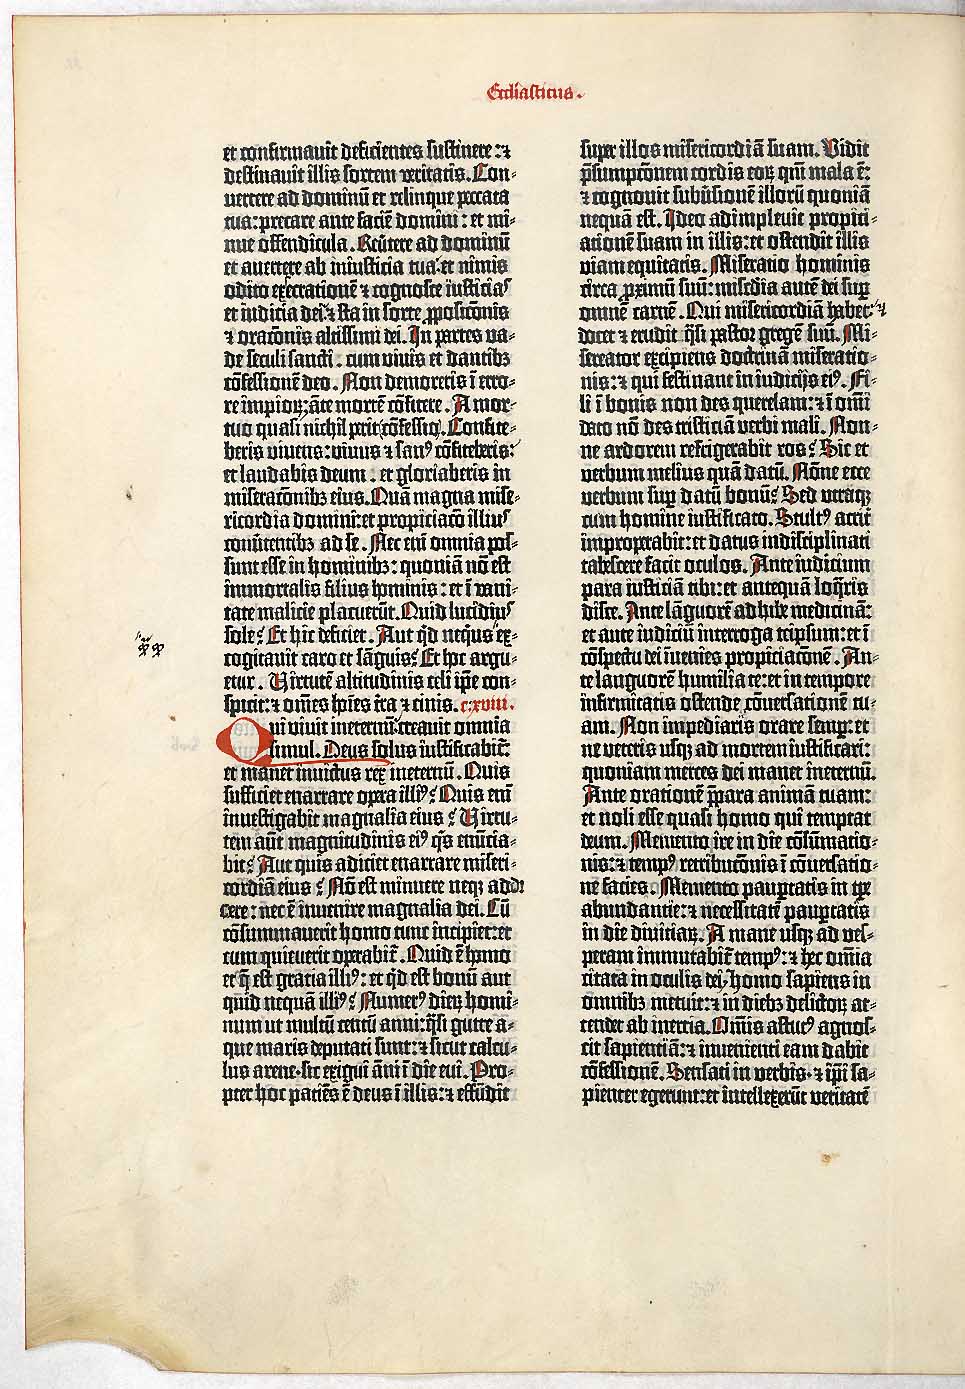 Ecclīasticus.
et confirmauit deficientes sustinere: ⁊
destinauit illis sortem veritatis. Con-
uertere ad dominū et relinque peccata
tua: precare ante faciē domini: et mi-
nue offendicula. Reūtere ad dominū
et auertere ab iniusticia tua: et nimis
odito execrationē ⁊ cognosce iusticias
et iudicia dei: ⁊ sta in sorte ꝓpositōnis
et oratōnis altissimi dei. In partes va-
de seculi sancti: cum viuis et dantibꝫ
cōfessionē deo. Non demoreris ī erro-
re impioꝝ: āte mortē cōfitere. A mor-
tuo quasi nichil perit cōfessio. Confite-
beris viuens: viuus ⁊ sanꝰ cōfiteberis:
et laudabis deum: et gloriaberis in
miseratōnibꝫ eius. Quā magna mise-
ricordia domini: et propiciatō illiuꝰ
conūtentibꝫ ad se. Nec em̄ omnia pos-
sunt esse in hominibꝫ: quoniā nō est
immortalis filius hominis: et ī vani-
tate malicie placuerūt. Quid lucidiuꝰ
sole? Et hic deficiet. Aut qd neqius ex-
cogitauit caro et sāguis? Et hoc argu-
etur. Virtutē altitudinis celi ipse con-
spicit: ⁊ om̄es hoīes terra ⁊ cinis. c. xviii.
Qui viuit ineternū: creauit omnia
simul. Deus solus iustificabit̄:
et manet inuictus rex ineternū. Quis
sufficiet enarrare opera illiꝰ? Quis em̄
inuestigabit magnalia eius? Virtu-
tem aūt magnitudinis eiꝰ q̄s enūcia-
bit? Aut quis adiciet enarrare miseri-
cordiā eius? Nō est minuere neqꝫ addi
cere: nec ē inuenire magnalia dei. Cū
cōsummauerit homo tunc incipiet: et
cum quieuerit operabit̄. Quid ē homo
et q̄ est gratia illiꝰ: et qd est bonū aut
quid nequā illiꝰ? Numerꝰ dieꝝ homi-
num ut multū centū anni: q̄si gutte a-
que maris deputati sunt: ⁊ sicut calcu-
lus arene sic exigui āni ī die eui. Pro-
pter hoc paciēs ē deus ī illis: ⁊ effūdit
super illos misericordiā suam. Vidit
p̄sumptōnem cordis eoꝝ qm̄ mala ē:
⁊ cognouit subūsionē illorū quoniā
nequā est. Ideo adimpleuit propici-
ationē suam in illis: et ostendit illis
viam equitatis. Miseratio hominis
circa ꝓximū suū: mīsedia autē dei suꝑ
omnē carnē. Qui misericordiā habet: ⁊
docet ⁊ erudit q̄si pastor gregē suū. Mi-
sereator excipiens doctrinā miseratio-
nis: ⁊ qui festinant in iudicijs eiꝰ. Fi-
li ī bonis non des querelam: ⁊ ī omī
dato nō des tristiciā verbi mali. Non-
ne ardorem refrigerabit ros? Sic et
verbum melius quā datū. Nōne ecce
verbum suꝑ datū bonū? Sed vtraqꝫ
cum homine iustificato. Stultꝰ acrit̄
improperabit: et datus indisciplinati
tabescere facit oculos. Ante iudicium
para iusticiā tibi: et antequā loqris
disce. Ante lāguorē adhibe medicinā:
et ante iudiciū interroga teipsum: et ī
cōspectu dei īuenies propiciatōnē. An-
te languorē humilia te: et in tempore
infirmitatis ostende cōuersationē tu-
am. Non impediaris orare semꝑ: et
ne veteris usqꝫ ad mortem iustificari:
quoniam merces dei manet ineternū.
Ante orationē p̄para animā tuam:
et noli esse quasi homo qui temptat
deum. Memento ire in die cōsūmatio-
nis: ⁊ tempꝰ retributōnis ī cōuersatio-
ne faciei. Memento paupertatis in tꝑe
abundantie: ⁊ necessitatē paupertatis
in die diuitiaꝝ. A mane usqꝫ ad ves-
peram immutabit̄ tempꝰ: ⁊ hec om̄ia
citata in oculis dei. Homo sapiens in
omnibꝫ metuit: ⁊ in diebꝫ delictoꝝ at-
tendet ab inertia. Om̄is astutꝰ agnos-
cit sapientiā: ⁊ inuenienti eam dabit
cōfessionē. Sensati in verbis ⁊ ip̄i sa-
pienter egerunt: et intellexerūt veritatē